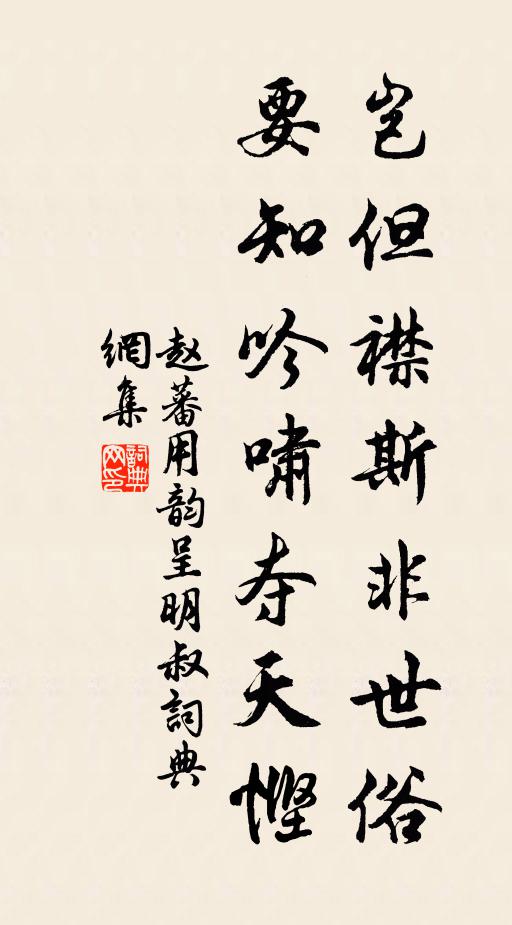 岂但襟斯非世俗
要知吟啸夺天悭
赵蕃用韵呈明叔詞典
網集
詞典
网印